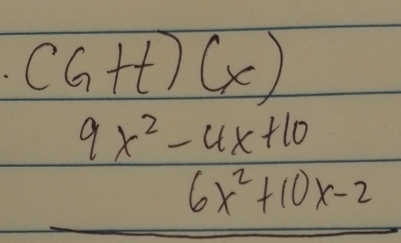 . (G+H)(x)
9x² - 4x+10
6x²+10x-2